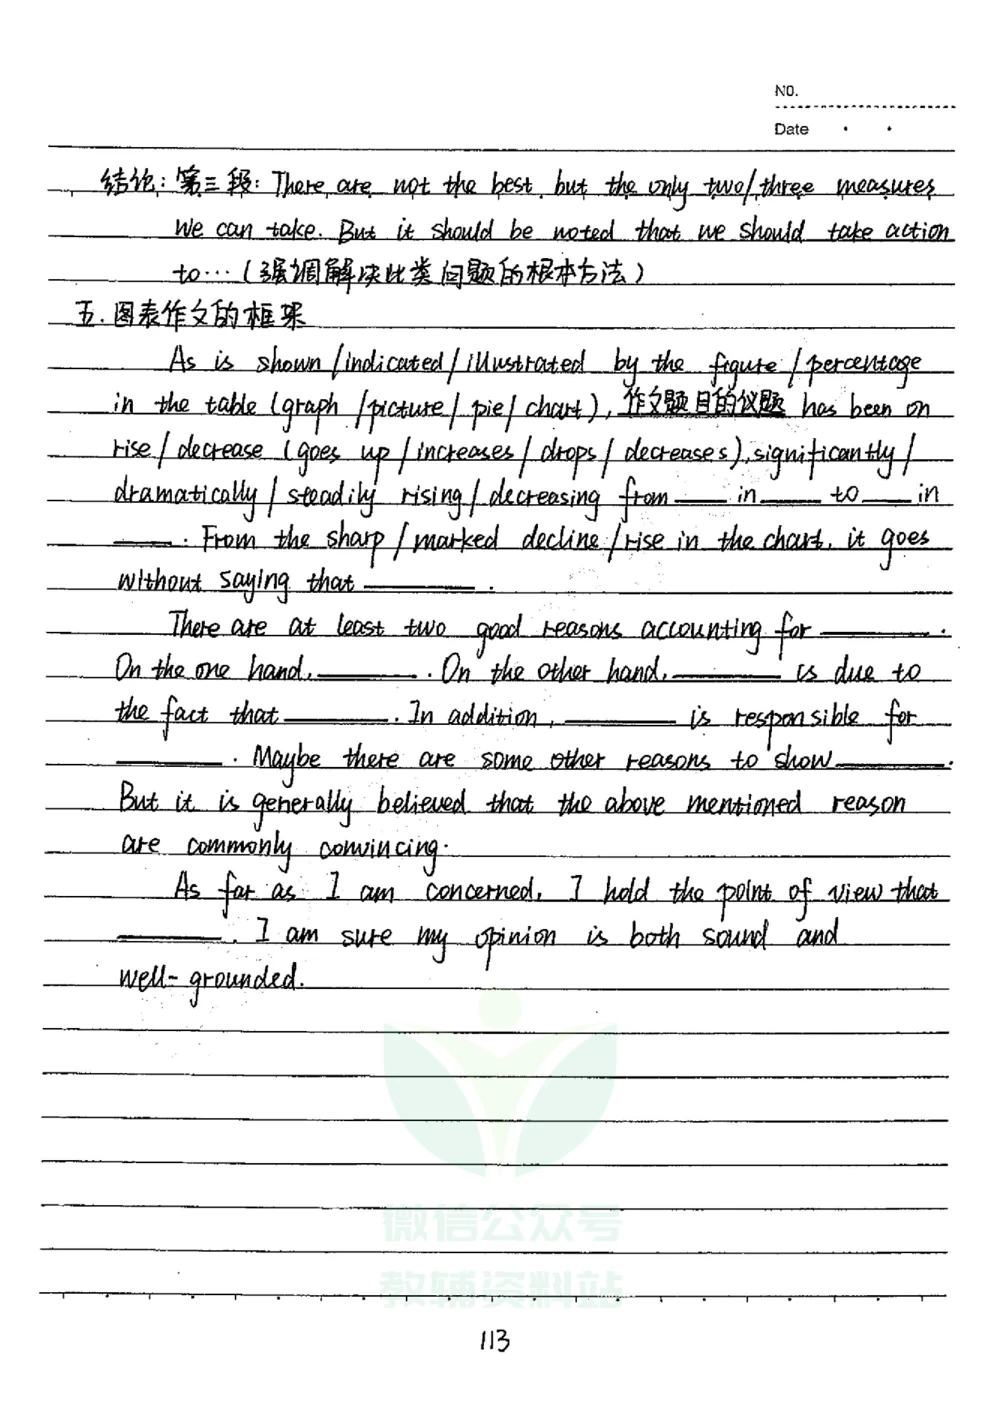 NO.
Date
结论：第三段：There are not the best, but the only two/three measures
we can take. But it should be noted that we should take action
to…（强调解决此类问题的根本方法）
五.图表作文的框架
As is shown/indicated/illustrated by the figure/percentage
in the table (graph/picture/pie/chart), 作文题目的议题 has been on
rise/decrease (goes up/increases/drops/decreases), significantly/
dramatically/steadily rising/decreasing from ____ in ____ to ____ in
____. From the sharp/marked decline/rise in the chart, it goes
without saying that ____.
There are at least two good reasons accounting for ____.
On the one hand, ____. On the other hand, ____ is due to
the fact that ____. In addition, ____ is responsible for
____. Maybe there are some other reasons to show ____.
But it is generally believed that the above mentioned reason
are commonly convincing.
As far as I am concerned, I hold the point of view that
____. I am sure my opinion is both sound and
well-grounded.
微信公众号
教辅资料站
113